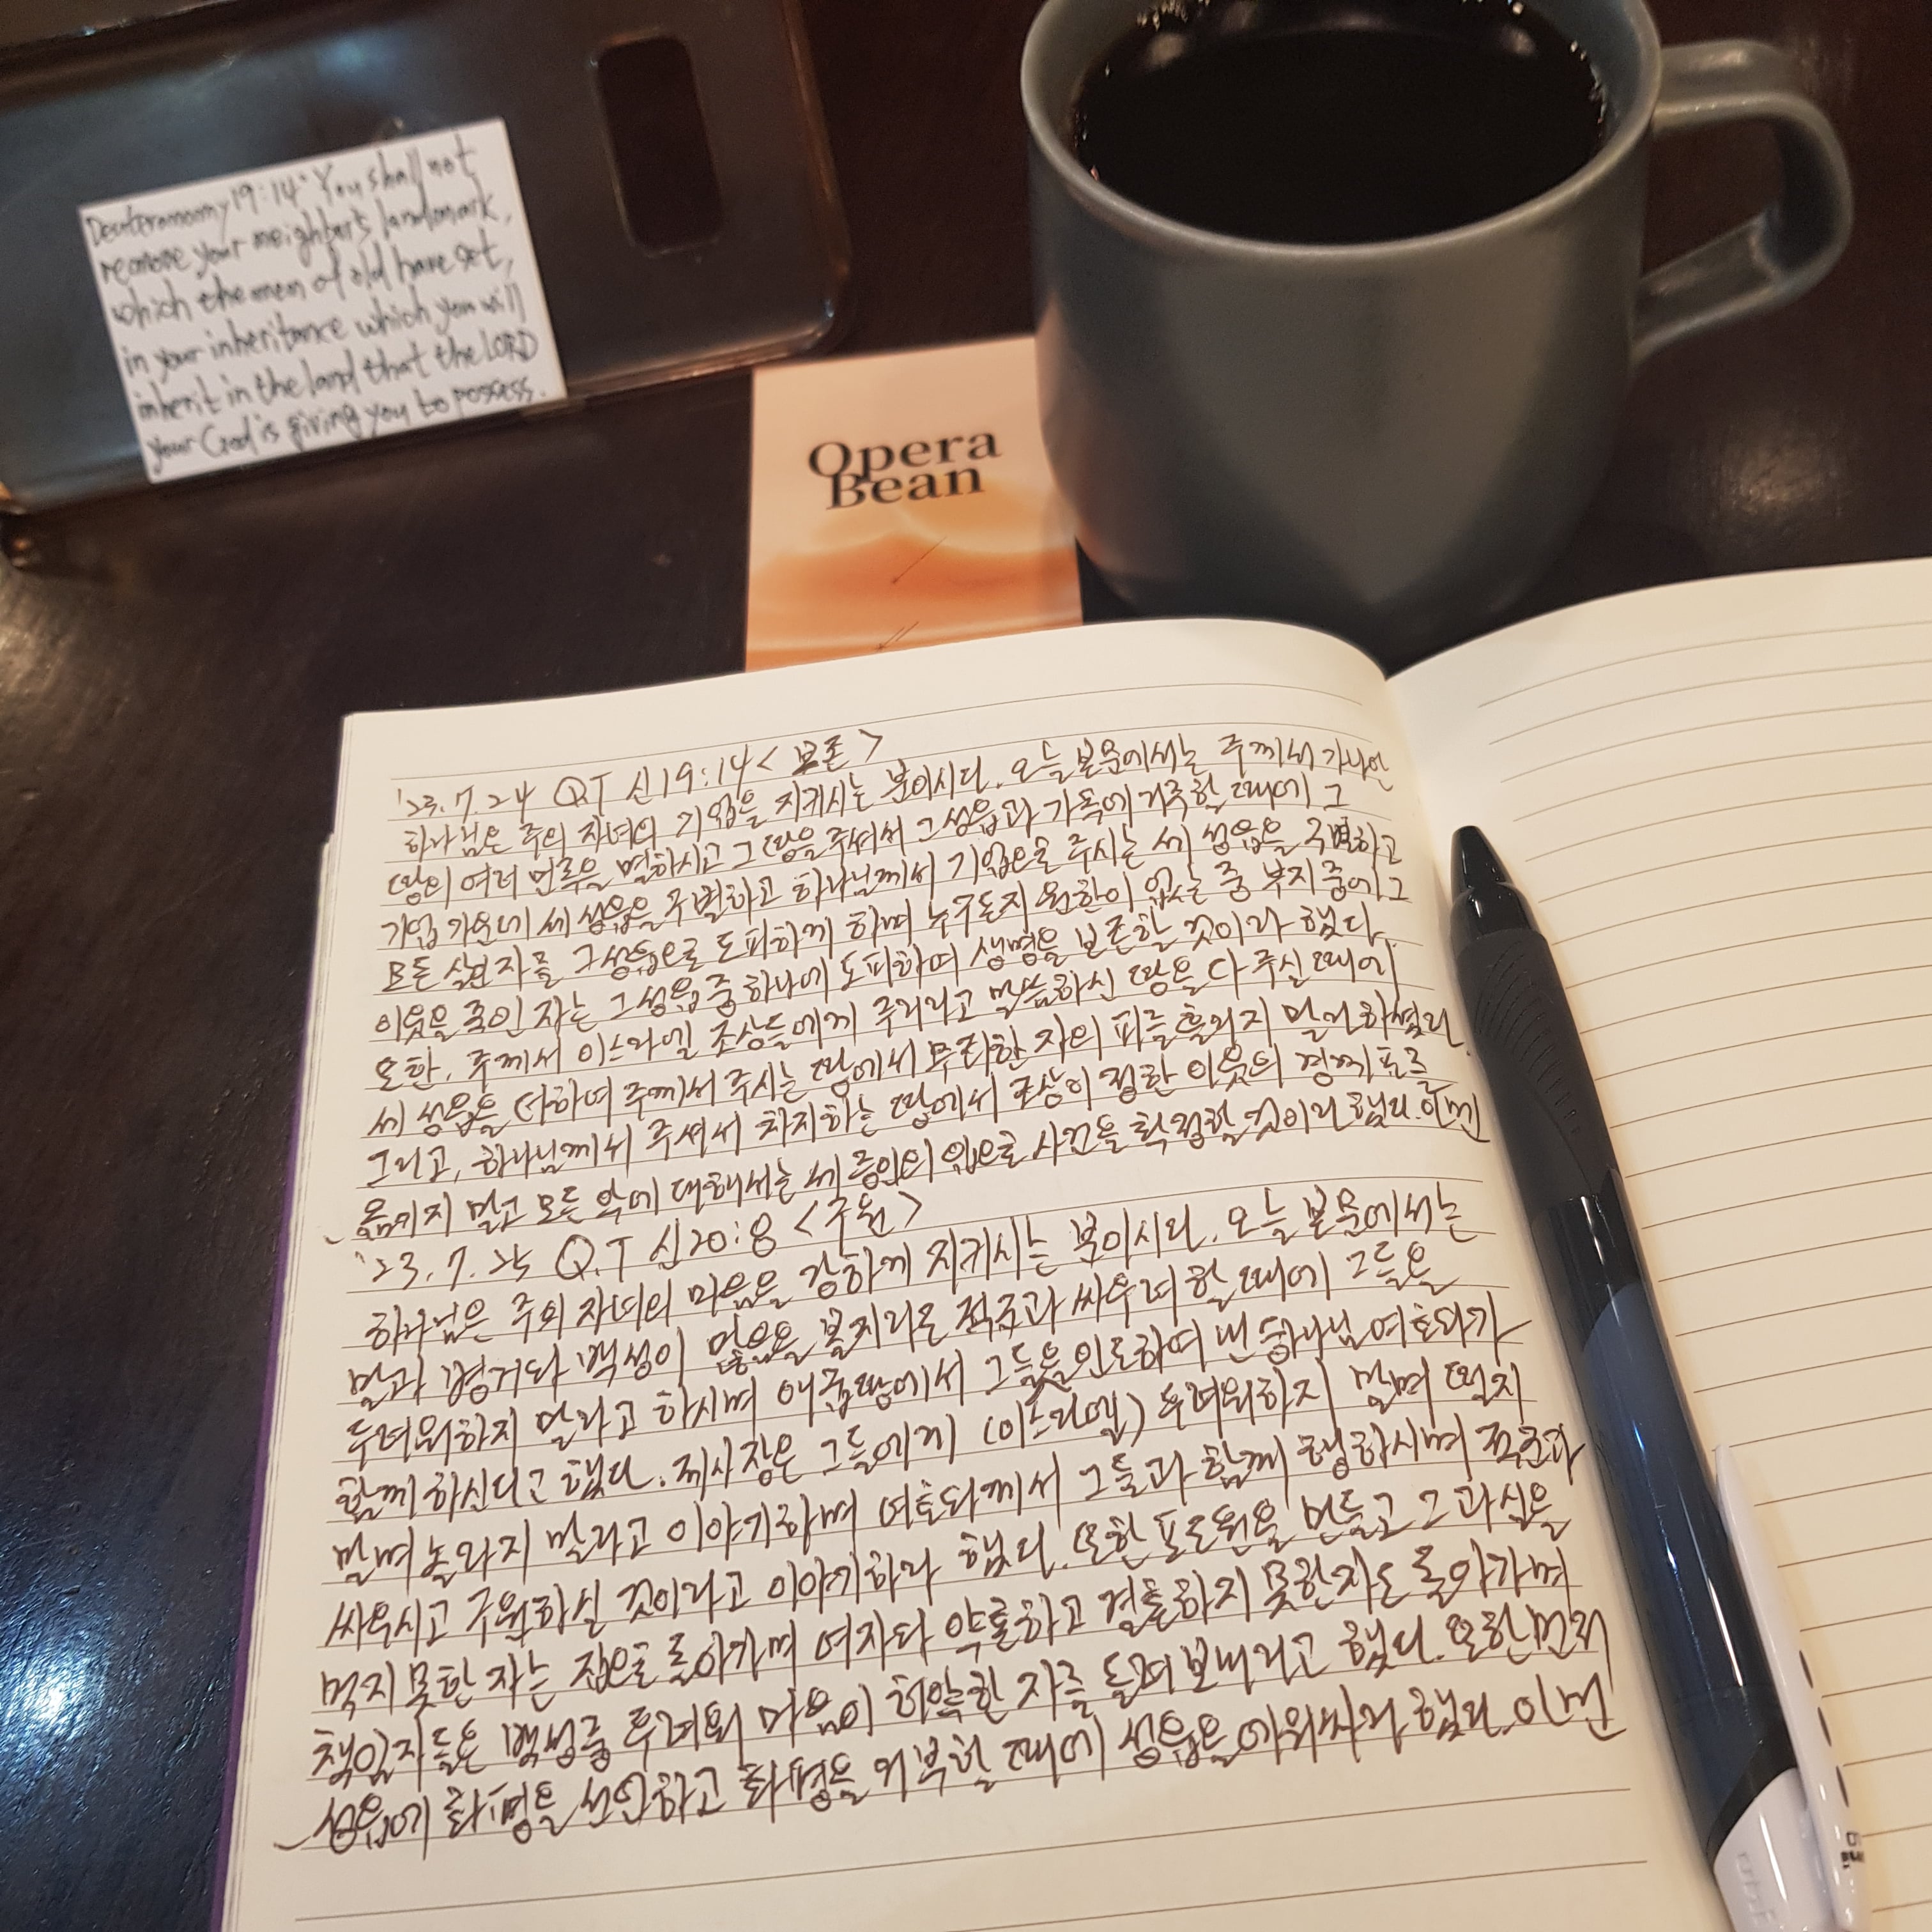 Deuteronomy 19:14 "You shall not
remove your neighbor's landmark,
which the men of old have set,
in your inheritance which you will
inherit in the land that the LORD
your God is giving you to possess.
Opera
Bean
'23.7.24 Q.T 신19:14 <보존>
하나님은 주의 자녀의 기업을 지키시는 분이시다. 오늘 본문에서는 주께서 가나안
땅의 여러 민족을 멸하시고 그 땅을 주셔서 그 성읍과 가옥에 거주할 때에 그
기업 가운데 세 성읍을 구별하고 하나님께서 기업으로 주시는 세 성읍을 구별하고
모든 살인자를 그 성읍으로 도피하게 하며 누구든지 원한이 없는 중 부지중에 그
이웃을 죽인 자는 그 성읍 중 하나에 도피하여 생명을 보존할 것이라 했다.
또한, 주께서 이스라엘 조상들에게 주리라고 말씀하신 땅을 다 주실 때에
세 성읍을 더하여 주께서 주시는 땅에서 무죄한 자의 피를 흘리지 말라 하셨다.
그리고, 하나님께서 주셔서 차지하는 땅에서 조상이 정한 이웃의 경계표를
옮기지 말고 모든 악에 대해서는 세 증인의 입으로 사건을 확정할 것이라 했다. 아멘
'23.7.25 Q.T 신20:8 <구원>
하나님은 주의 자녀의 마음을 강하게 지키시는 분이시다. 오늘 본문에서는
말과 병거와 백성이 많음을 볼지라도 적군과 싸우려 할 때에 그들을
두려워하지 말라고 하시며 애굽땅에서 그들을 인도하여 낸 하나님 여호와가
함께 하신다고 했다. 제사장은 그들에게 (이스라엘) 두려워하지 말며 떨지
말며 놀라지 말라고 이야기하며 여호와께서 그들과 함께 행하시며 적군과
싸우시고 구원하실 것이라고 이야기하라 했다. 또한 포도원을 만들고 그 과실을
먹지 못한 자는 집으로 돌아가며 여자와 약혼하고 결혼하지 못한 자도 돌아가며
책임자들은 백성중 두려워 마음이 허약한 자를 돌려 보내라고 했다. 또한 먼저
성읍에 화평을 선언하고 화평을 거부할 때에 성읍을 에워싸라 했다. 아멘